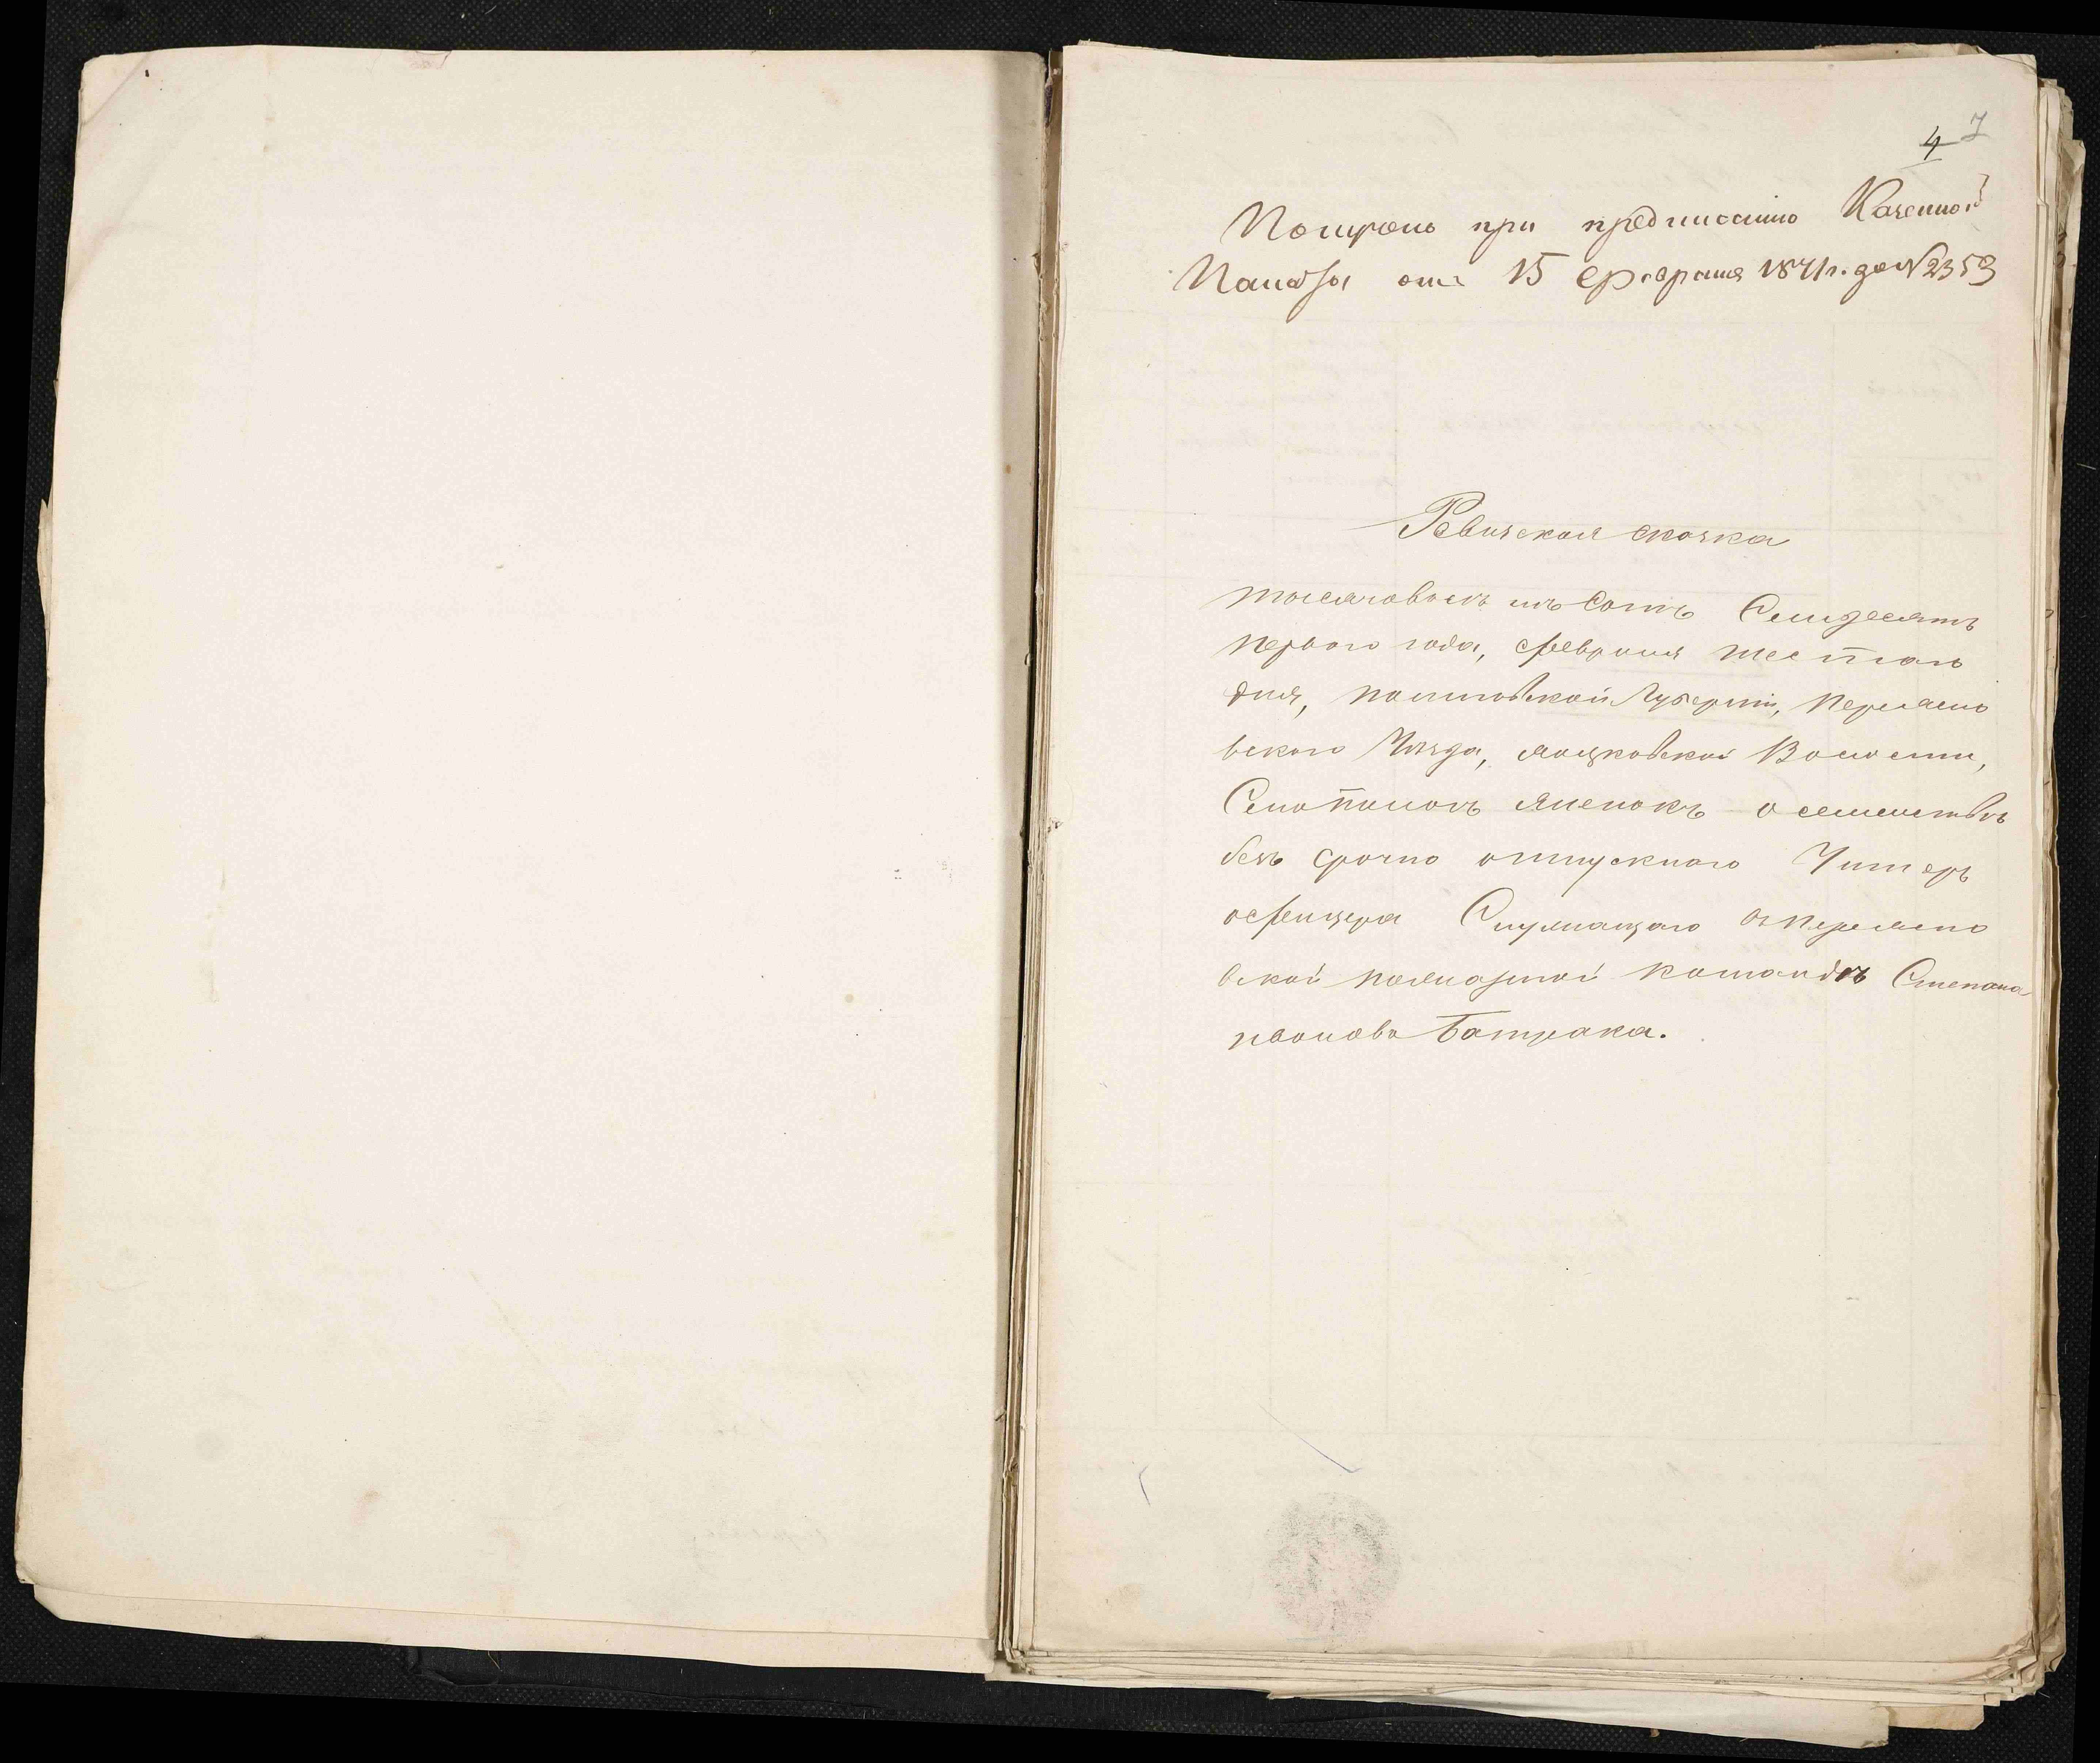 4 7
Получено при предписанию Казенной
Палаты отъ 15 февраля 1871 г. за № 2353
Ревизская сказка
тысяча восемъ сотъ Семдесятъ
первого года, февраля шестаго
дня, полтовской Губернiи, Переяслов
вского Уезда, Волости,
о семействѣ
безъ срочно отпускного Унтеръ
офицера Служащаго в переясло
вской пожарной командѣ Степана
Батрака.